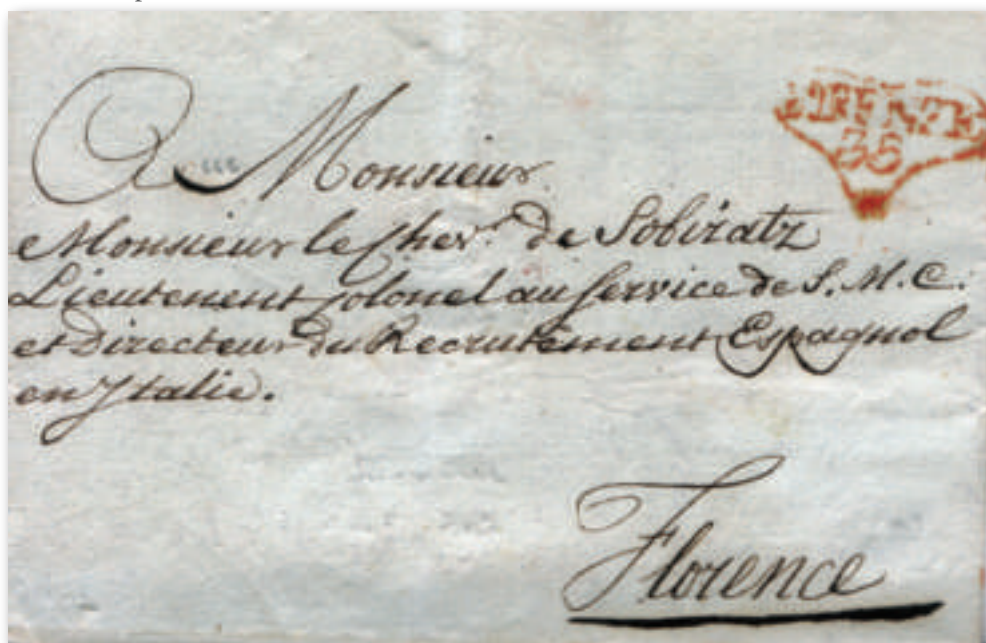 A Monsieur
FIRENZE
35
Monsieur le Cher. de Sobiratz
Lieutenent Colonel au Service de S. M. C.
et Directeur du Recrutement Espagnol
en Italie.
Florence